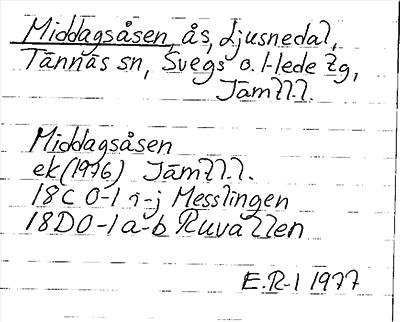 Middagsåsen, ås, Ljusnedal,
Tännäs sn, Svegs o. Hede tg,
Jämtl.
Middagsåsen
ek (1976) Jämtl.
18C 0-1 i-j Messlingen
18D 0-1 a-b Ruvallen
E.R-l 1977